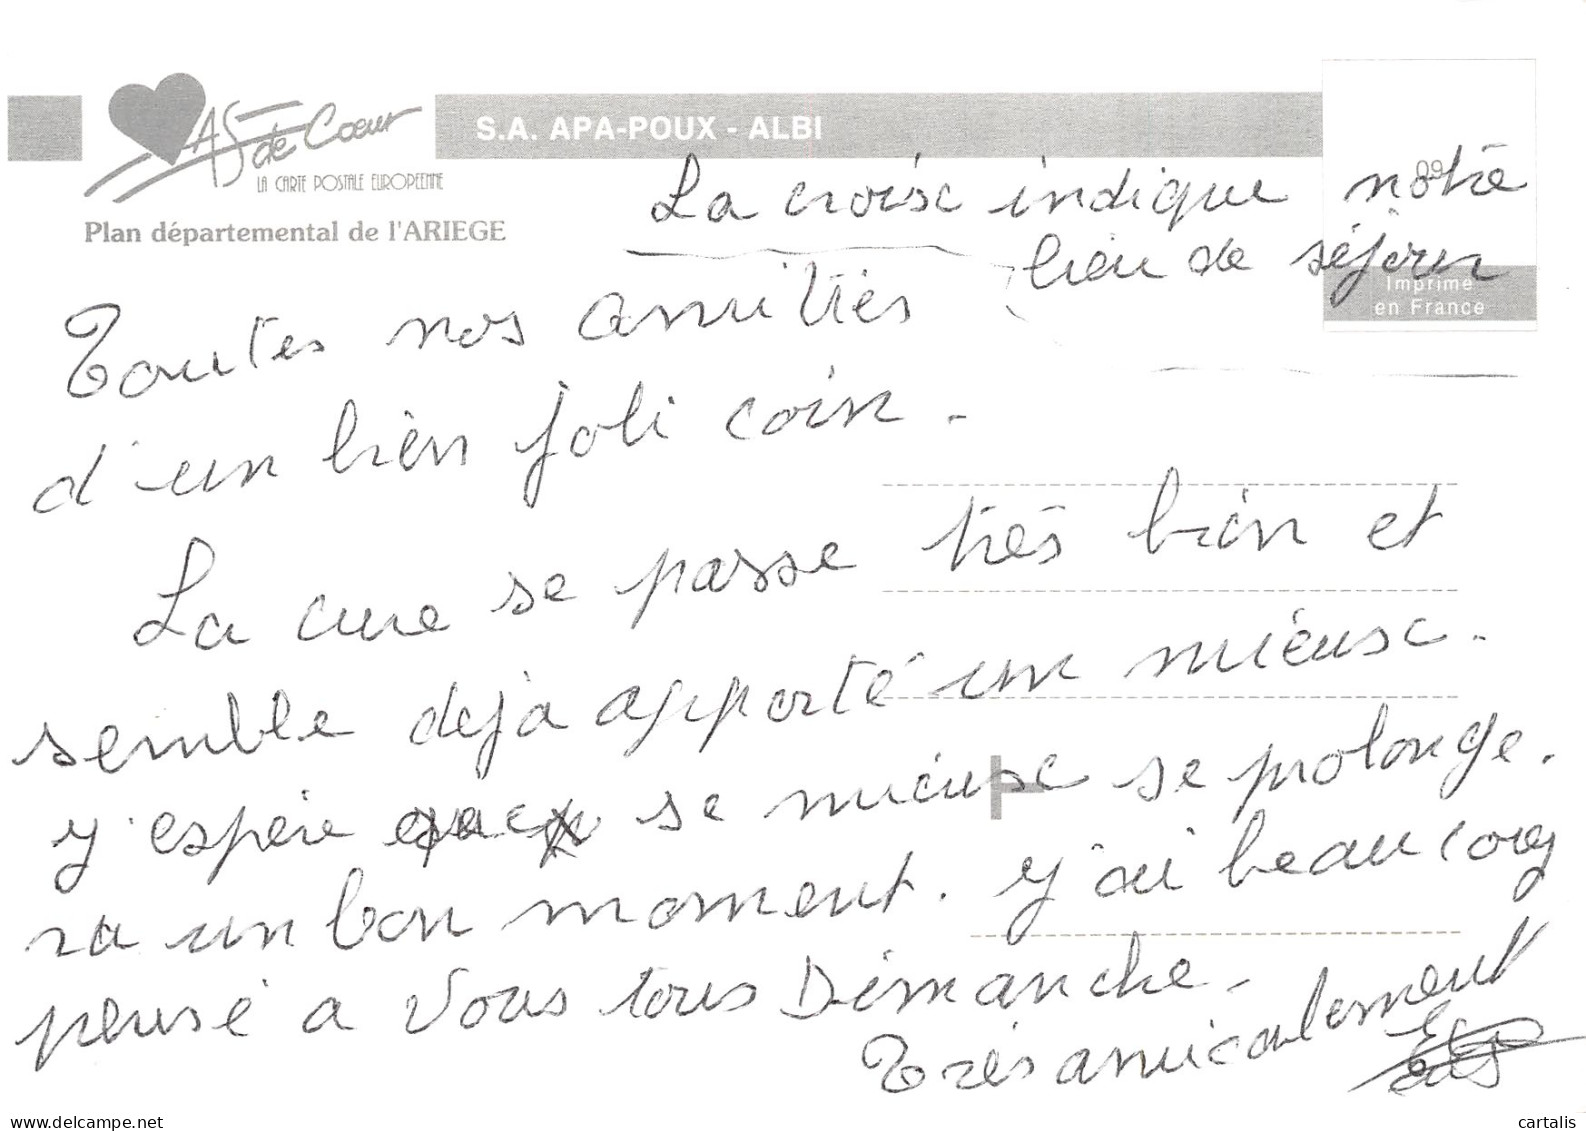 AS de Coeur
LA CARTE POSTALE EUROPEENNE
S.A. APA-POUX - ALBI
Plan départemental de l'ARIEGE
09
Imprimé
en France
La croix indique notre
lieu de séjour
Toutes nos amitiés
d'un bien joli coin.
La cure se passe très bien et
semble déjà apporté un mieux.
J'espère que ce mieux se prolonge.
ra un bon moment. J'ai beaucoup
pensé a Vous tous Dimanche.
Très amicalement
delcampe.net
cartalis